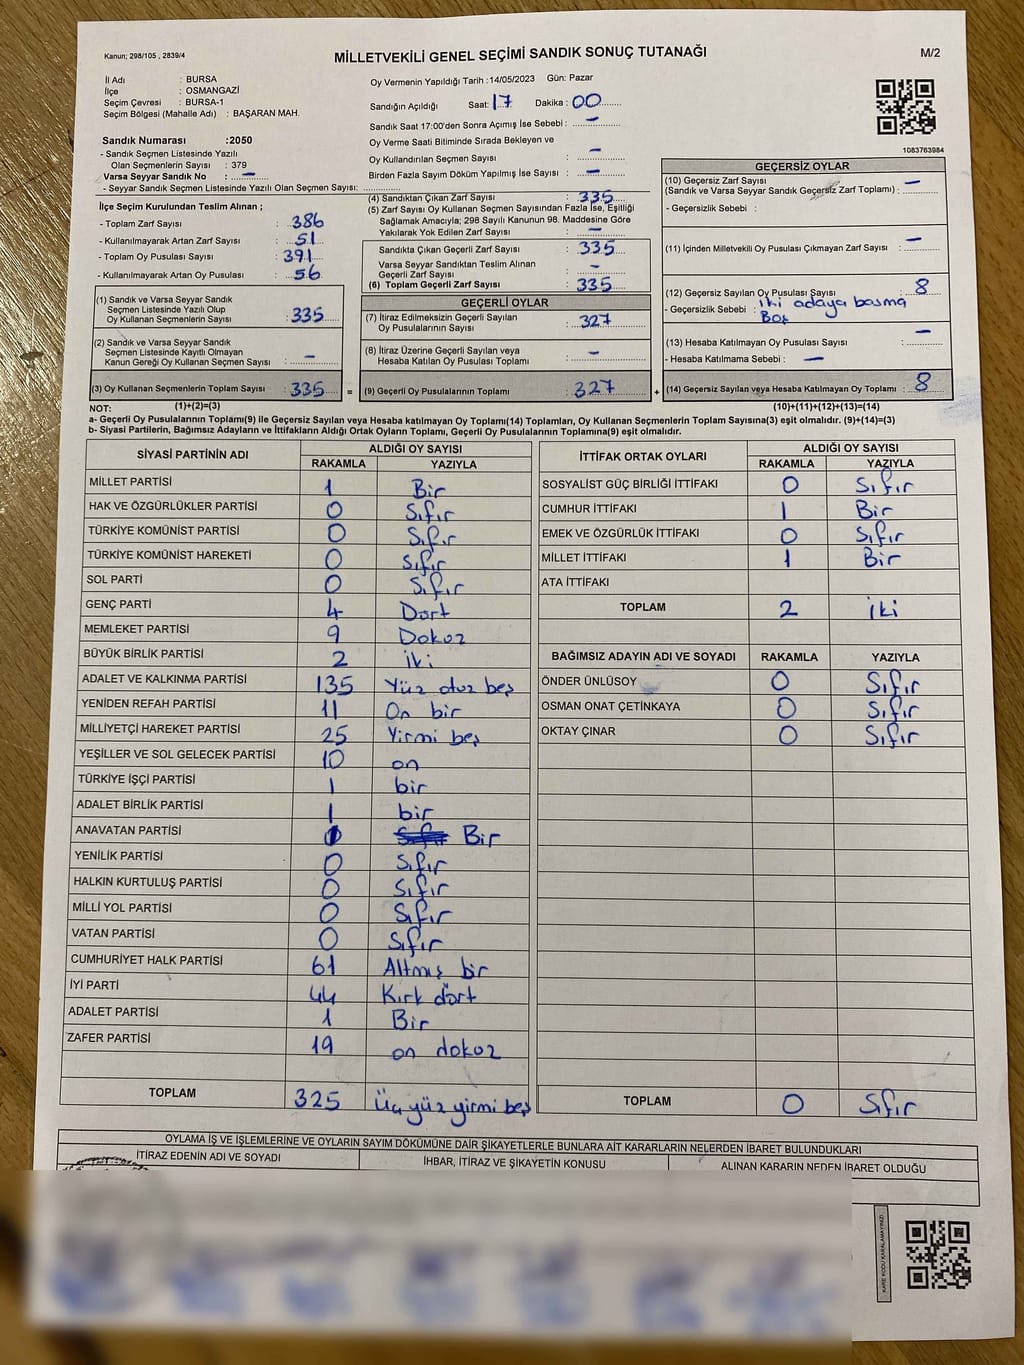 Kanun; 298/105 , 2839/4
MİLLETVEKİLİ GENEL SEÇİMİ SANDIK SONUÇ TUTANAĞI
M/2
İl Adı : BURSA
İlçe : OSMANGAZİ
Seçim Çevresi : BURSA-1
Seçim Bölgesi (Mahalle Adı) : BAŞARAN MAH.
Sandık Numarası :2050
- Sandık Seçmen Listesinde Yazılı
Olan Seçmenlerin Sayısı : 379
Varsa Seyyar Sandık No : –
- Seyyar Sandık Seçmen Listesinde Yazılı Olan Seçmen Sayısı:
İlçe Seçim Kurulundan Teslim Alınan ;
- Toplam Zarf Sayısı : 386
- Kullanılmayarak Artan Zarf Sayısı : 51
- Toplam Oy Pusulası Sayısı : 391
- Kullanılmayarak Artan Oy Pusulası : 56
(1) Sandık ve Varsa Seyyar Sandık
Seçmen Listesinde Yazılı Olup
Oy Kullanan Seçmenlerin Sayısı : 335
(2) Sandık ve Varsa Seyyar Sandık
Seçmen Listesinde Kayıtlı Olmayan
Kanun Gereği Oy Kullanan Seçmen Sayısı : –
(3) Oy Kullanan Seçmenlerin Toplam Sayısı : 335 =
Oy Vermenin Yapıldığı Tarih :14/05/2023 Gün: Pazar
Sandığın Açıldığı Saat: 17 Dakika : 00
Sandık Saat 17:00'den Sonra Açımış İse Sebebi : –
Oy Verme Saati Bitiminde Sırada Bekleyen ve
Oy Kullandırılan Seçmen Sayısı : –
Birden Fazla Sayım Döküm Yapılmış İse Sayısı : –
(4) Sandıktan Çıkan Zarf Sayısı : 335
(5) Zarf Sayısı Oy Kullanan Seçmen Sayısından Fazla İse, Eşitliği
Sağlamak Amacıyla; 298 Sayılı Kanunun 98. Maddesine Göre
Yakılarak Yok Edilen Zarf Sayısı : –
Sandıkta Çıkan Geçerli Zarf Sayısı : 335
Varsa Seyyar Sandıktan Teslim Alınan
Geçerli Zarf Sayısı : –
(6) Toplam Geçerli Zarf Sayısı : 335
GEÇERLİ OYLAR
(7) İtiraz Edilmeksizin Geçerli Sayılan
Oy Pusulalarının Sayısı : 327
(8) İtiraz Üzerine Geçerli Sayılan veya
Hesaba Katılan Oy Pusulası Toplamı : –
(9) Geçerli Oy Pusulalarının Toplamı : 327 +
1083763984
GEÇERSİZ OYLAR
(10) Geçersiz Zarf Sayısı –
(Sandık ve Varsa Seyyar Sandık Geçersiz Zarf Toplamı) :
- Geçersizlik Sebebi :
(11) İçinden Milletvekili Oy Pusulası Çıkmayan Zarf Sayısı : –
(12) Geçersiz Sayılan Oy Pusulası Sayısı : 8
- Geçersizlik Sebebi : iki adaya basma
Boş
(13) Hesaba Katılmayan Oy Pusulası Sayısı : –
- Hesaba Katılmama Sebebi : –
(14) Geçersiz Sayılan veya Hesaba Katılmayan Oy Toplamı : 8
NOT: (1)+(2)=(3) (10)+(11)+(12)+(13)=(14)
a- Geçerli Oy Pusulalarının Toplamı(9) ile Geçersiz Sayılan veya Hesaba katılmayan Oy Toplamı(14) Toplamları, Oy Kullanan Seçmenlerin Toplam Sayısına(3) eşit olmalıdır. (9)+(14)=(3)
b- Siyasi Partilerin, Bağımsız Adayların ve İttifakların Aldığı Ortak Oyların Toplamı, Geçerli Oy Pusulalarının Toplamına(9) eşit olmalıdır.
SİYASİ PARTİNİN ADI ALDIĞI OY SAYISI
RAKAMLA YAZIYLA
MİLLET PARTİSİ 1 Bir
HAK VE ÖZGÜRLÜKLER PARTİSİ 0 Sıfır
TÜRKİYE KOMÜNİST PARTİSİ 0 Sıfır
TÜRKİYE KOMÜNİST HAREKETİ 0 Sıfır
SOL PARTİ 0 Sıfır
GENÇ PARTİ 4 Dört
MEMLEKET PARTİSİ 9 Dokuz
BÜYÜK BİRLİK PARTİSİ 2 iki
ADALET VE KALKINMA PARTİSİ 135 Yüz otuz beş
YENİDEN REFAH PARTİSİ 11 On bir
MİLLİYETÇİ HAREKET PARTİSİ 25 Yirmi beş
YEŞİLLER VE SOL GELECEK PARTİSİ 10 on
TÜRKİYE İŞÇİ PARTİSİ 1 bir
ADALET BİRLİK PARTİSİ 1 bir
ANAVATAN PARTİSİ 1 Bir
YENİLİK PARTİSİ 0 Sıfır
HALKIN KURTULUŞ PARTİSİ 0 Sıfır
MİLLİ YOL PARTİSİ 0 Sıfır
VATAN PARTİSİ 0 Sıfır
CUMHURİYET HALK PARTİSİ 61 Altmış bir
İYİ PARTİ 44 Kırk dört
ADALET PARTİSİ 1 Bir
ZAFER PARTİSİ 19 on dokuz
TOPLAM 325 Üç yüz yirmi beş
İTTİFAK ORTAK OYLARI ALDIĞI OY SAYISI
RAKAMLA YAZIYLA
SOSYALİST GÜÇ BİRLİĞİ İTTİFAKI 0 Sıfır
CUMHUR İTTİFAKI 1 Bir
EMEK VE ÖZGÜRLÜK İTTİFAKI 0 Sıfır
MİLLET İTTİFAKI 1 Bir
ATA İTTİFAKI
TOPLAM 2 iki
BAĞIMSIZ ADAYIN ADI VE SOYADI RAKAMLA YAZIYLA
ÖNDER ÜNLÜSOY 0 Sıfır
OSMAN ONAT ÇETİNKAYA 0 Sıfır
OKTAY ÇINAR 0 Sıfır
TOPLAM 0 Sıfır
OYLAMA İŞ VE İŞLEMLERİNE VE OYLARIN SAYIM DÖKÜMÜNE DAİR ŞİKAYETLERLE BUNLARA AİT KARARLARIN NELERDEN İBARET BULUNDUKLARI
İTİRAZ EDENİN ADI VE SOYADI İHBAR, İTİRAZ VE ŞİKAYETİN KONUSU ALINAN KARARIN NEDEN İBARET OLDUĞU
KARE KODU KARALAMAYINIZ!